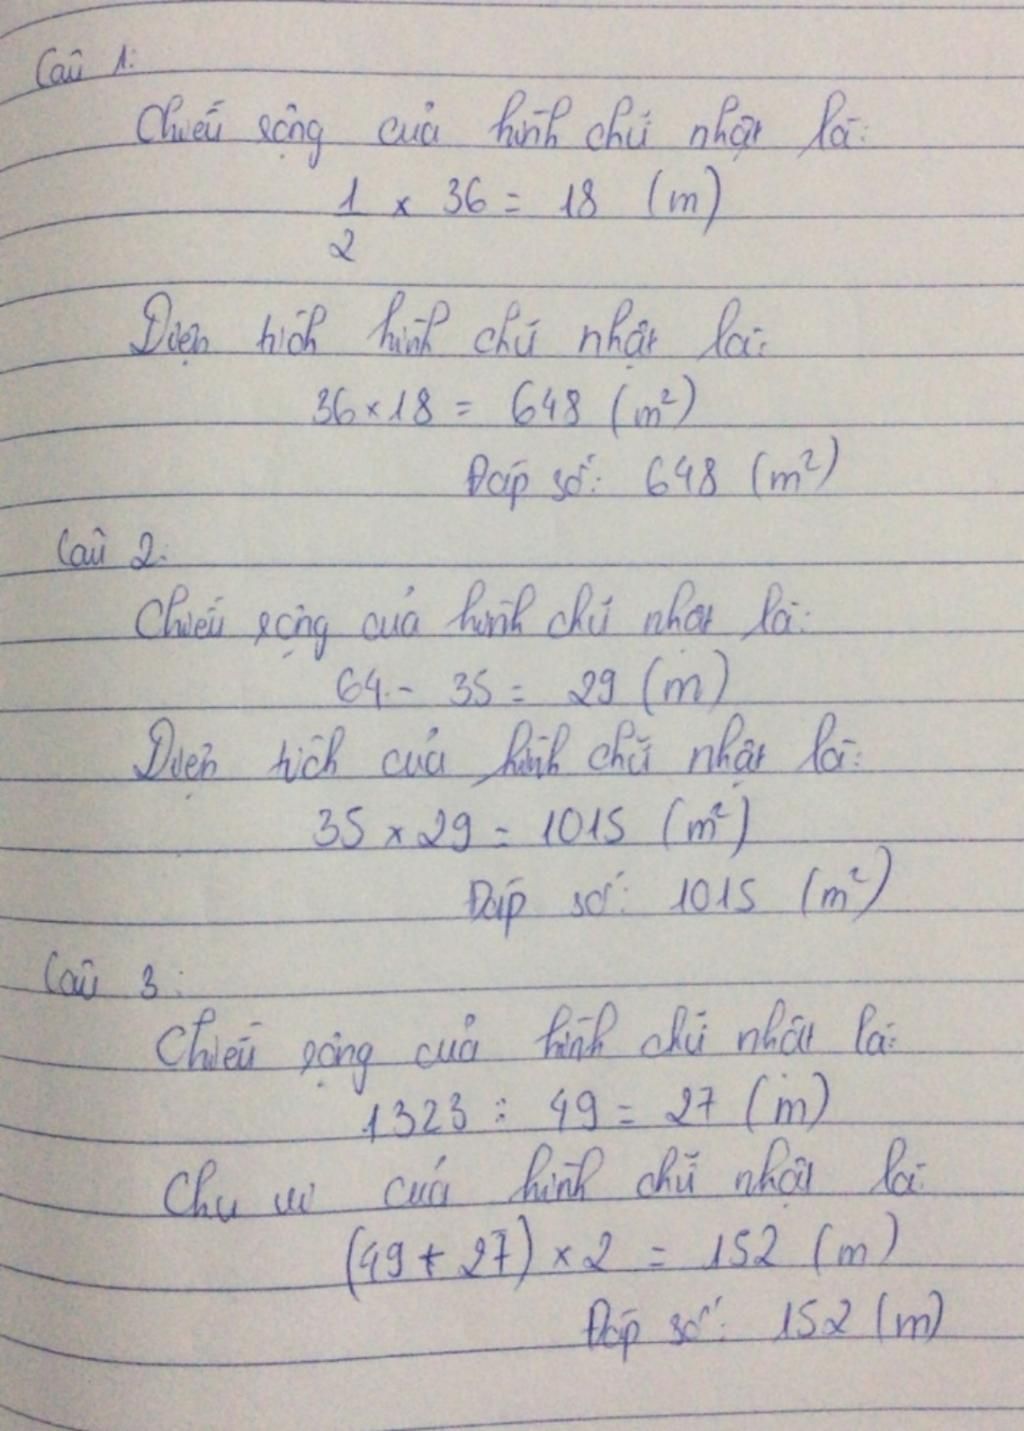 Câu 1:
Chiều rộng của hình chữ nhật là:
1/2 x 36 = 18 (m)
Diện tích hình chữ nhật là:
36 x 18 = 648 (m²)
Đáp số: 648 (m²)
Câu 2:
Chiều rộng của hình chữ nhật là:
64 - 35 = 29 (m)
Diện tích của hình chữ nhật là:
35 x 29 = 1015 (m²)
Đáp số: 1015 (m²)
Câu 3:
Chiều rộng của hình chữ nhật là:
1323 : 49 = 27 (m)
Chu vi của hình chữ nhật là:
(49 + 27) x 2 = 152 (m)
Đáp số: 152 (m)